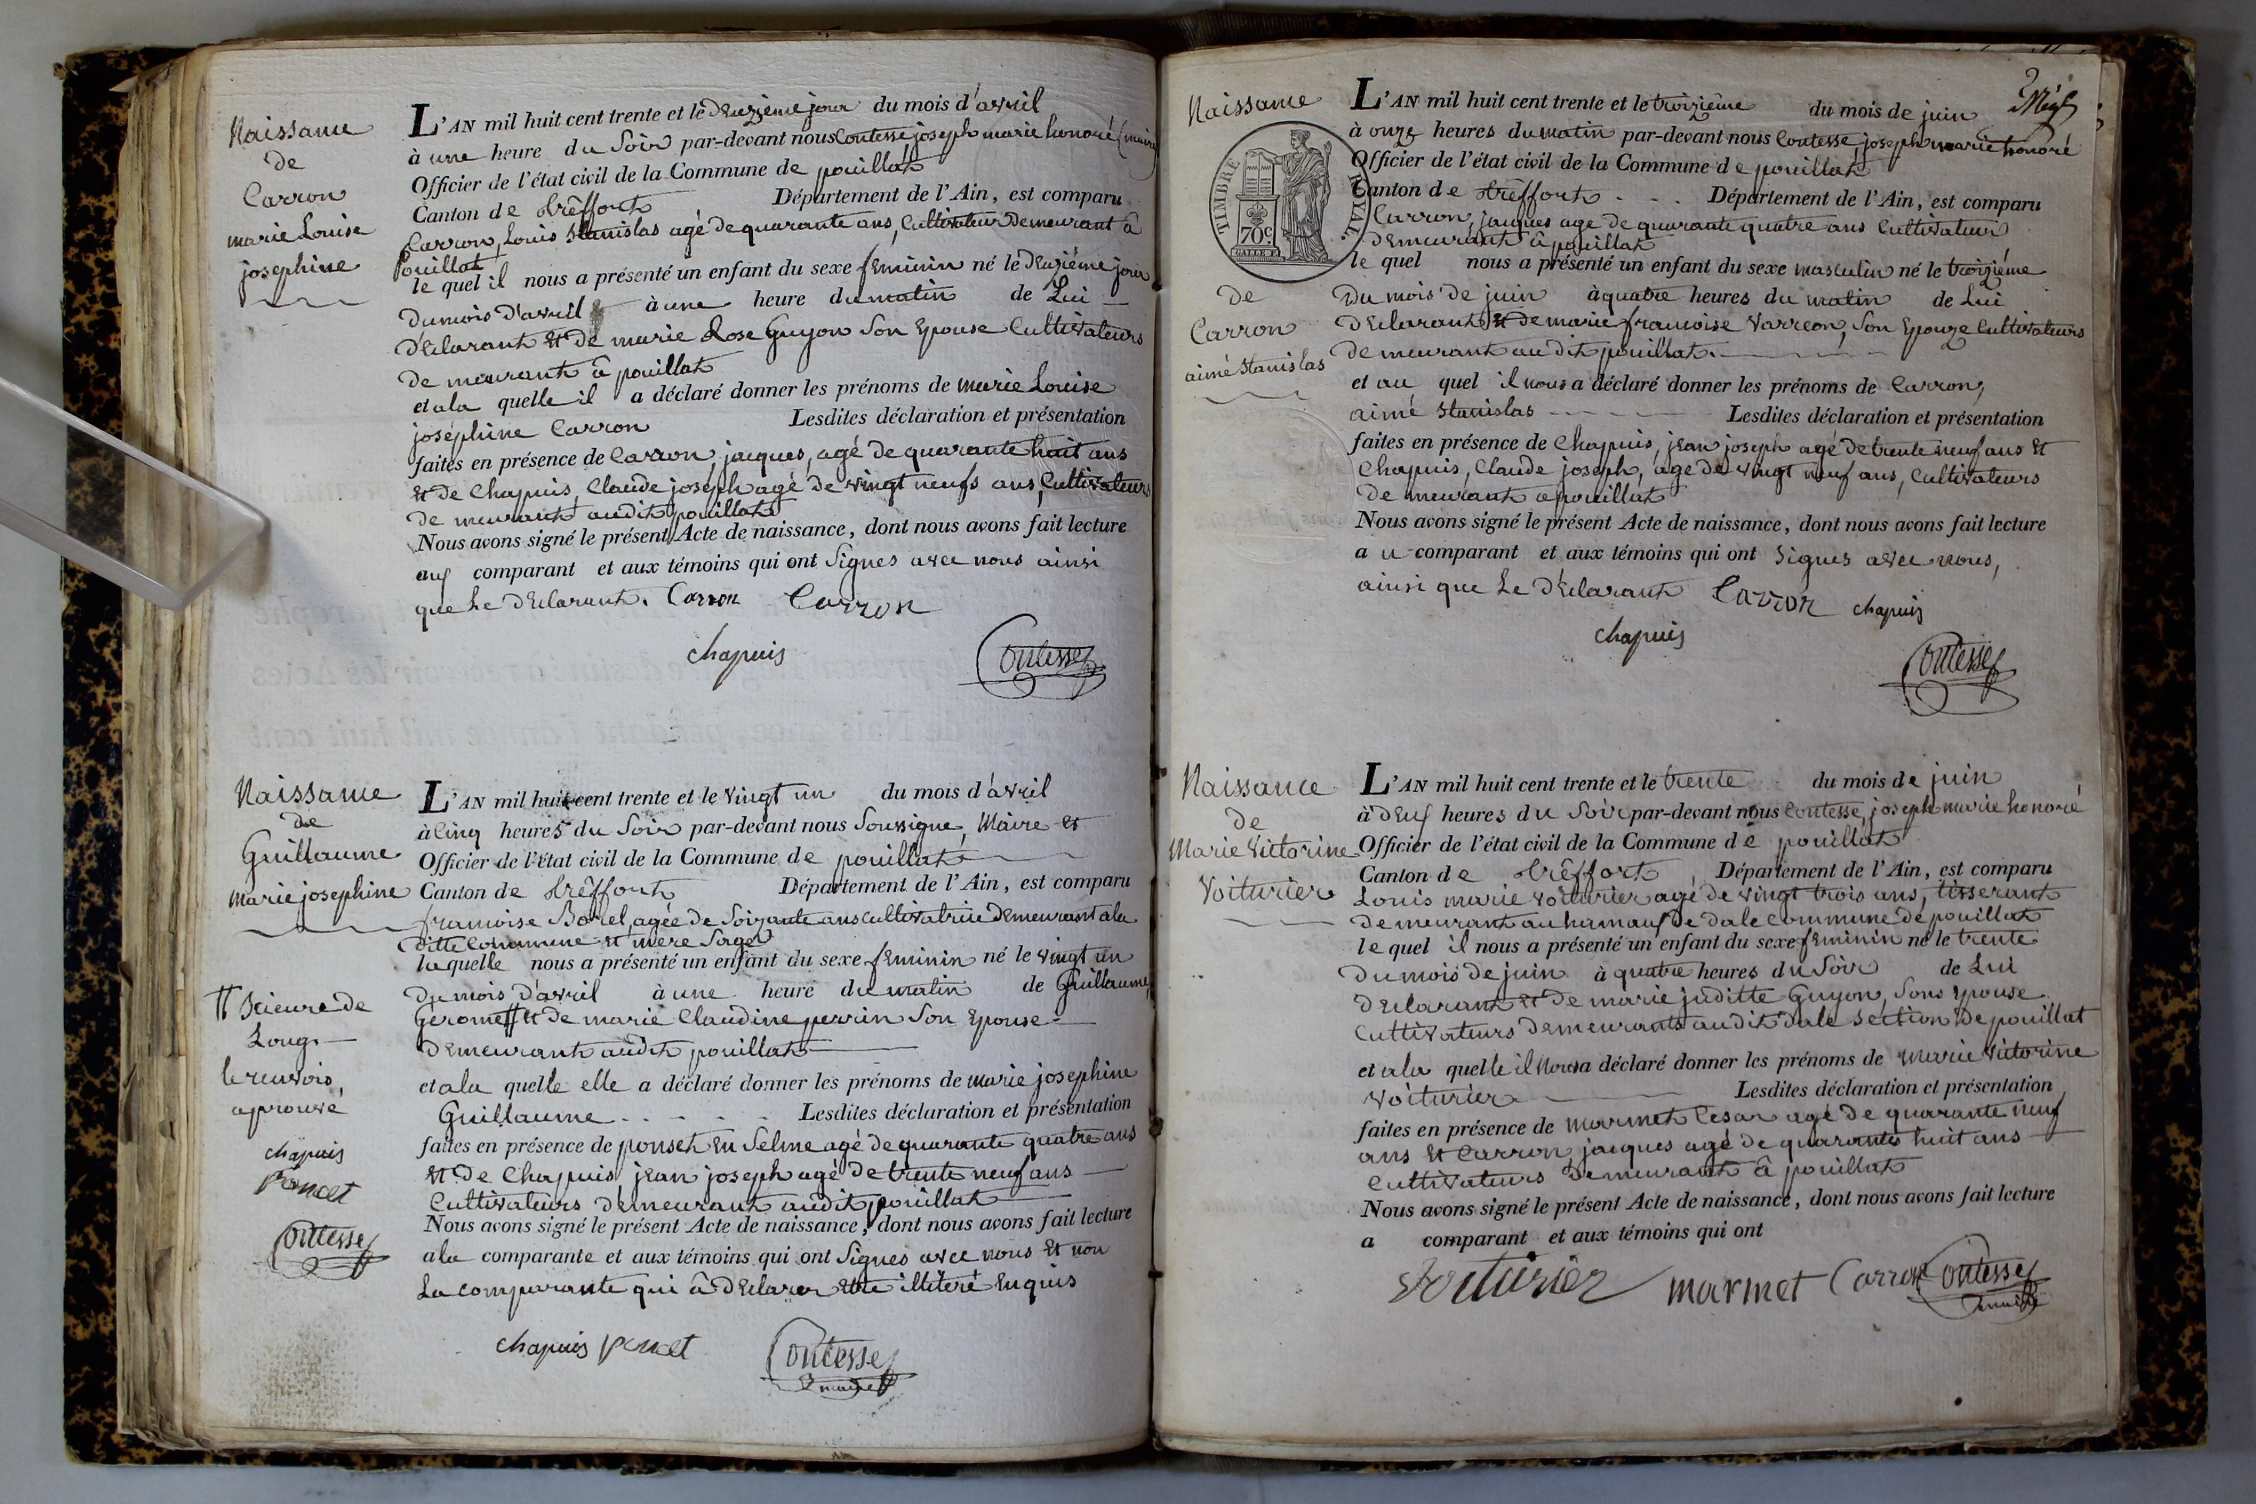 Naissance
de
Carron
marie Louise
josephine
L'AN mil huit cent trente et le deuzième jour du mois d'avril
à une heure du Soir par-devant nous Contesse, joseph marie honoré (maire
Officier de l'état civil de la Commune de pouillat
Canton de trêffort Département de l'Ain, est comparu
Carron, Louis Stanislas agé de quarante ans, Cultivateur Demeurant â
Pouillat
le quel il nous a présenté un enfant du sexe feminin né le deuziéme jour
du mois d'avril à une heure du matin de Lui
déclarant et de marie Rose Guyon Son Epouse Cultivateurs
de meurant â pouillat
et a la quelle il a déclaré donner les prénoms de marie Louise
joséphine Carron Lesdites déclaration et présentation
faites en présence de Carron, jacques, agé de quarante huit ans
et de Chapuis, Claude joseph agé de vingt neufs ans, Cultivateurs
de meurant audit pouillat
Nous avons signé le présent Acte de naissance, dont nous avons fait lecture
aux comparant et aux témoins qui ont Signes avec nous ainsi
que Le déclarant. Carron Carron
chapuis Contesse
Naissance
de
Guillaume
marie josephine
L'AN mil huit cent trente et le vingt un du mois d'avril
à Cinq heures du Soir par-devant nous Soussigné, Maire et
Officier de l'état civil de la Commune de pouillat
Canton de trêffort Département de l'Ain, est comparu
francoise Borel, agée de Soixante ans cultivatrice demeurant a la
ditte Commune et mere Sage
laquelle nous a présenté un enfant du sexe feminin né le vingt un
du mois d'avril à une heure du matin de Guillaume,
Gerome # et de marie Claudine perrin Son Epouse
demeurant audit pouillat
et a la quelle elle a déclaré donner les prénoms de marie josephine
Guillaume Lesdites déclaration et présentation
faites en présence de ponset En Selme agé de quarante quatre ans
et de Chapuis jean joseph agé de trente neuf ans
Cultivateurs demeurant audit pouillat
Nous avons signé le présent Acte de naissance, dont nous avons fait lecture
a la comparante et aux témoins qui ont Signes avec nous et non
La comparante qui â déclarer etre illiteré Enquis
# Scieure de
Long.
le renvois,
aprouvé
chapuis
Poncet
Contesse
chapuis poncet Contesse
maire
Naissance
TIMBRE ROYAL.
70c
de
Carron
aimé Stanislas
L'AN mil huit cent trente et le troizième du mois de juin
à onze heures du matin par-devant nous Contesse, joseph marie honoré
Officier de l'état civil de la Commune de pouillat
Canton de trêffort Département de l'Ain, est comparu
Carron, jacques age de quarante quatre ans Cultivateur
demeurant â pouillat
le quel nous a présenté un enfant du sexe masculin né le troizième
du mois de juin à quatre heures du matin de Lui
déclarant et de marie francoise Varreon, Son Epouze Cultivateurs
de meurant au dit pouillat.
et au quel il nous a déclaré donner les prénoms de Carron,
aimé Stanislas Lesdites déclaration et présentation
faites en présence de Chapuis, jean joseph agé de trente neuf ans et
Chapuis, Claude joseph, age de vingt neuf ans, Cultivateurs
de meurant a pouillat
Nous avons signé le présent Acte de naissance, dont nous avons fait lecture
au comparant et aux témoins qui ont Signes avec nous,
ainsi que Le déclarant Carron chapuis
chapuis
Contesse
Naissance
de
Marie Victorine
Voiturier
L'AN mil huit cent trente et le trente du mois de juin
à deux heures du Soir par-devant nous Contesse, joseph marie honoré
Officier de l'état civil de la Commune de pouillat
Canton de trêffort, Département de l'Ain, est comparu
Louis marie Voiturier agé de vingt trois ans, tisserant
demeurant au hamaux de dale Commune de pouillat
le quel il nous a présenté un enfant du sexe feminin né le trente
du mois de juin à quatre heures du Soir de Lui
déclarant et de marie juditte Guyon, Sons Epouse
Cultivateurs demeurants audit dale Section de pouillat
et a la quelle il nous a déclaré donner les prénoms de marie Victorine
Voiturier Lesdites déclaration et présentation
faites en présence de marmet Cesar agé de quarante neuf
ans et Carron, jacques agé de quarante huit ans
Cultivateurs demeurant â pouillat
Nous avons signé le présent Acte de naissance, dont nous avons fait lecture
a comparant et aux témoins qui ont
Voiturier marmet Carron Contesse
maire